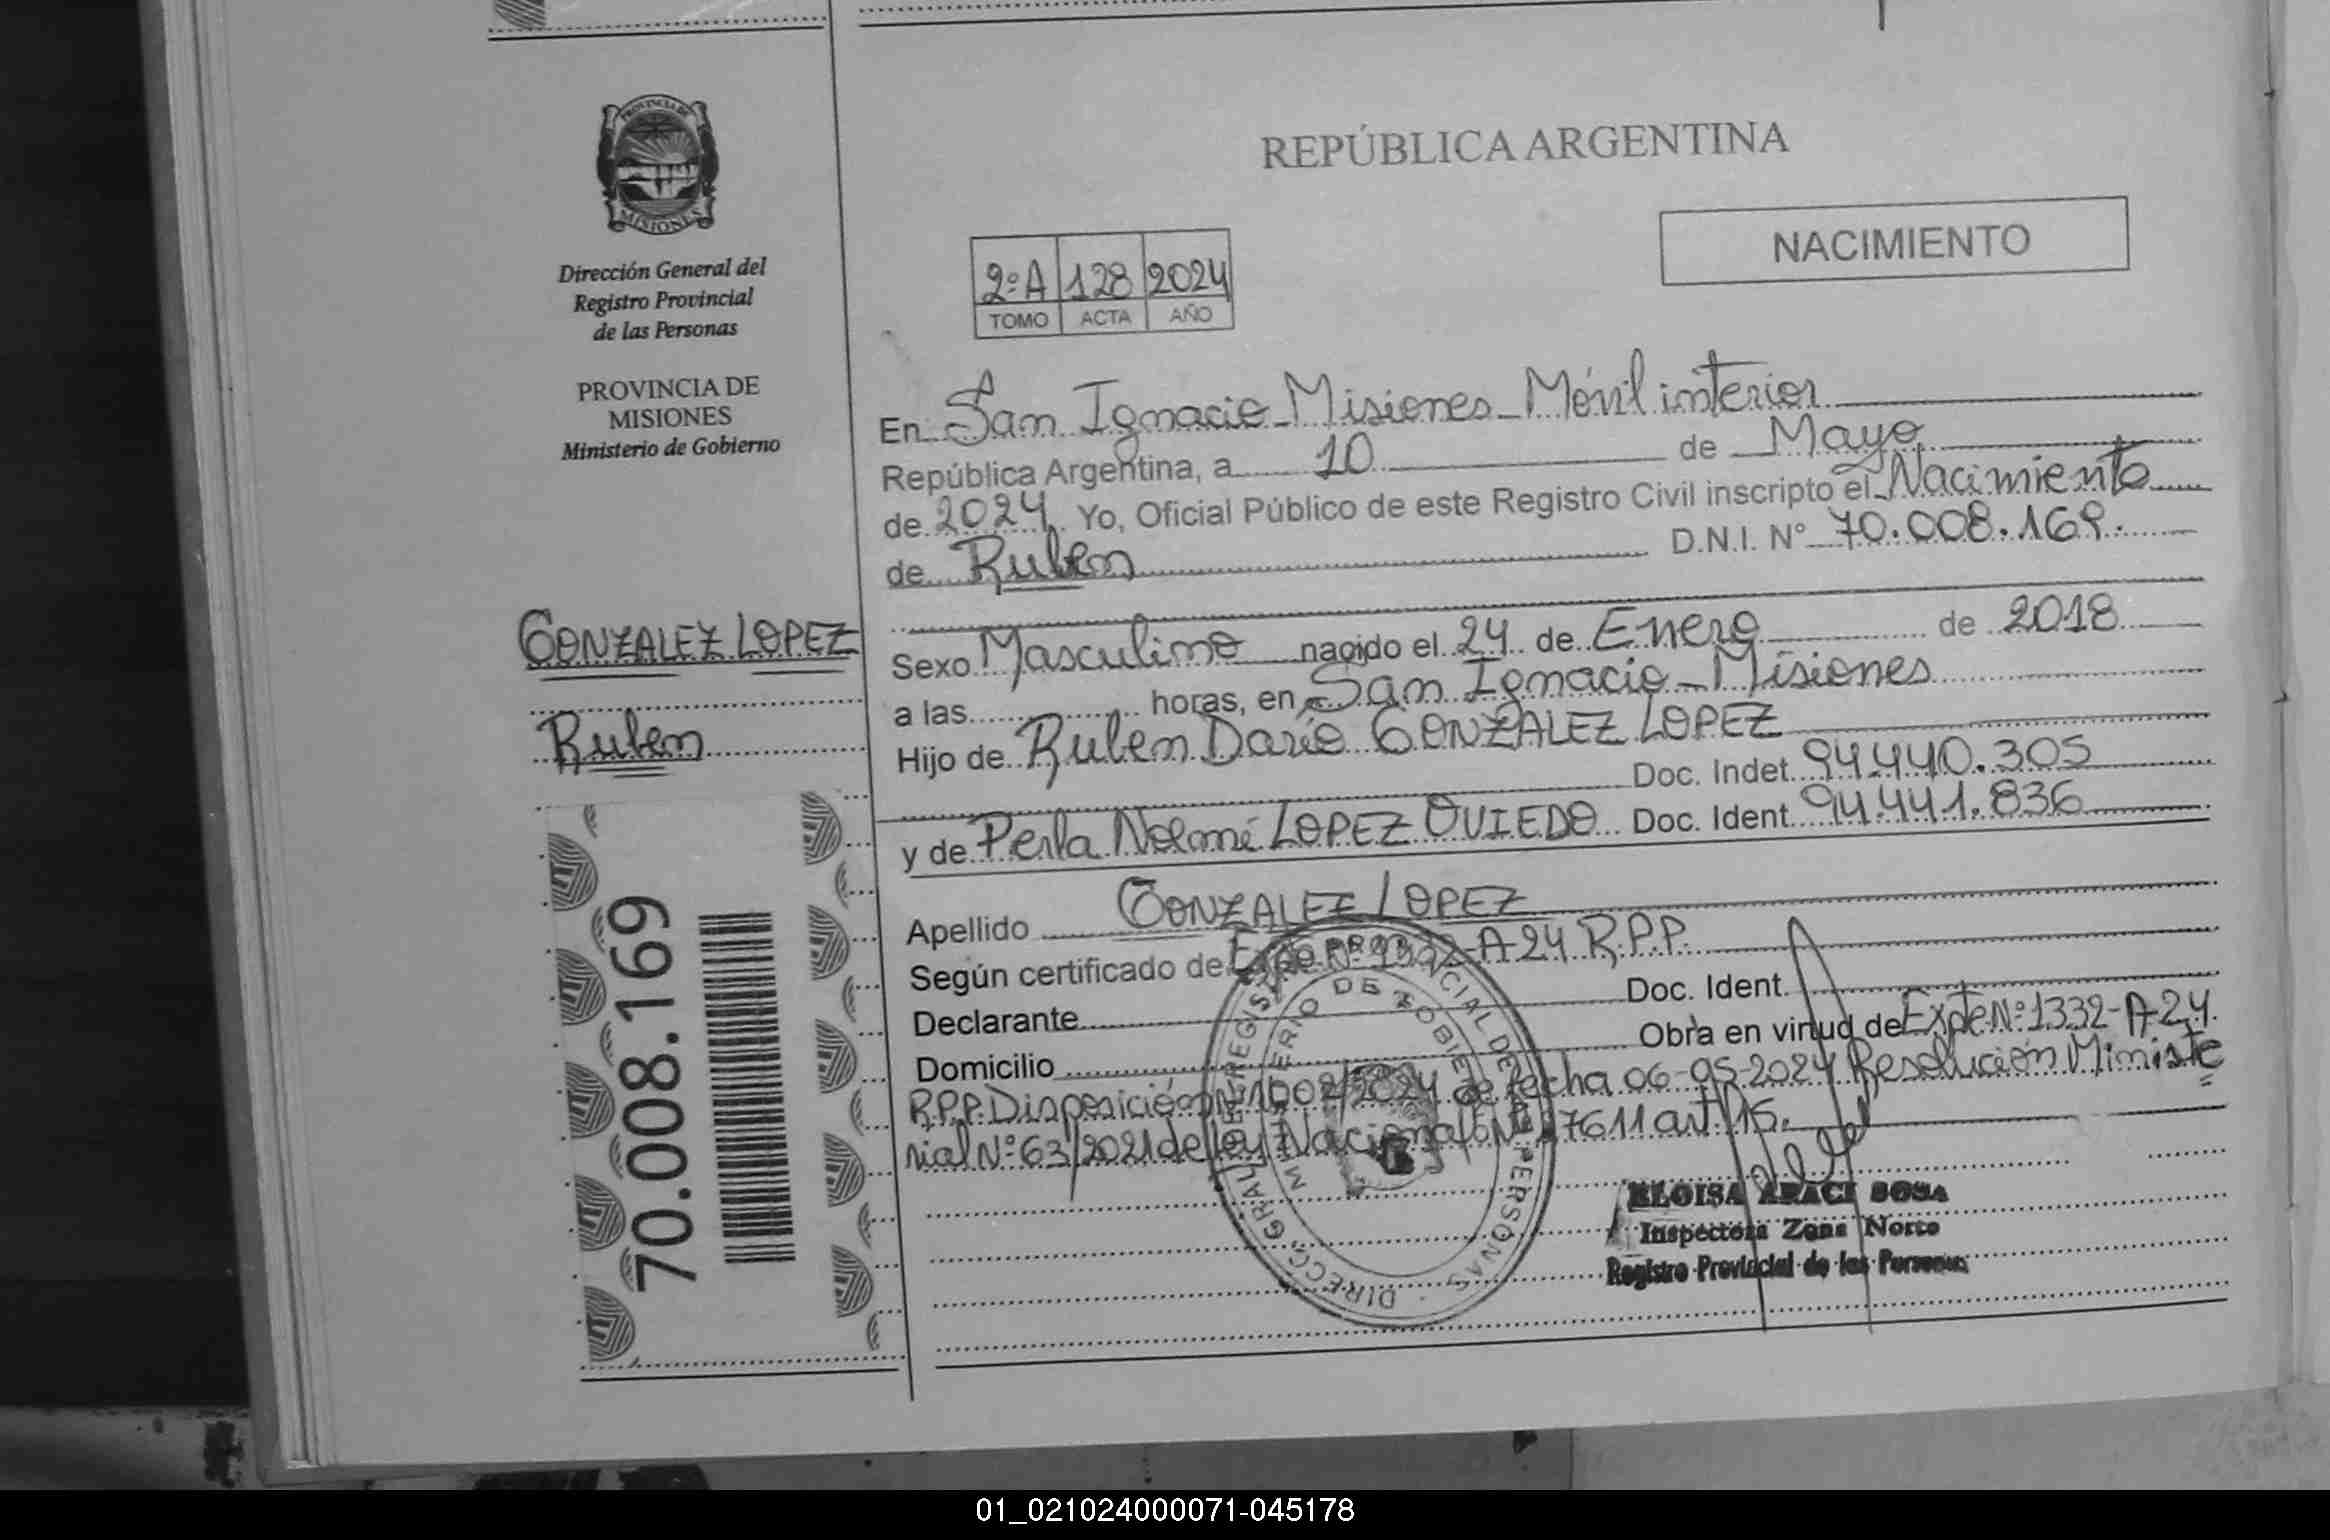 PROVINCIA DE
MISIONES
Dirección General del
Registro Provincial
de las Personas
PROVINCIA DE
MISIONES
Ministerio de Gobierno
GONZALEZ LOPEZ
Ruben
70.008.169
REPÚBLICA ARGENTINA
NACIMIENTO
2ºA 128 2024
TOMO ACTA AÑO
En San Ignacio - Misiones - Móvil interior
República Argentina, a 10 de Mayo
de 2024 Yo, Oficial Público de este Registro Civil inscripto el Nacimiento
de Ruben D.N.I. Nº 70.008.169.
Sexo Masculino nacido el 24 de Enero de 2018
a las horas, en San Ignacio - Misiones
Hijo de Ruben Darío GONZALEZ LOPEZ
Doc. Indet. 94.440.305
y de Perla Noemí LOPEZ OVIEDO Doc. Ident. 94.441.836
Apellido GONZALEZ LOPEZ
Según certificado de Expe Nº 1332-A-24 R.P.P.
Declarante Doc. Ident.
Domicilio Obra en virtud de Expte Nº 1332-A-24.
R.P.P. Disposición Nº 1002/2024 de fecha 06-05-2024 Resolución Ministe
rial Nº 63/2021 de ley Nacional Nº 27611 art. 15.
DIRECC. GRAL. DEL REGISTRO PROVINCIAL DE LAS PERSONAS
MINISTERIO DE GOBIERNO
ELOISA ARACI SOSA
Inspectora Zona Norte
Registro Provincial de las Personas
01_021024000071-045178